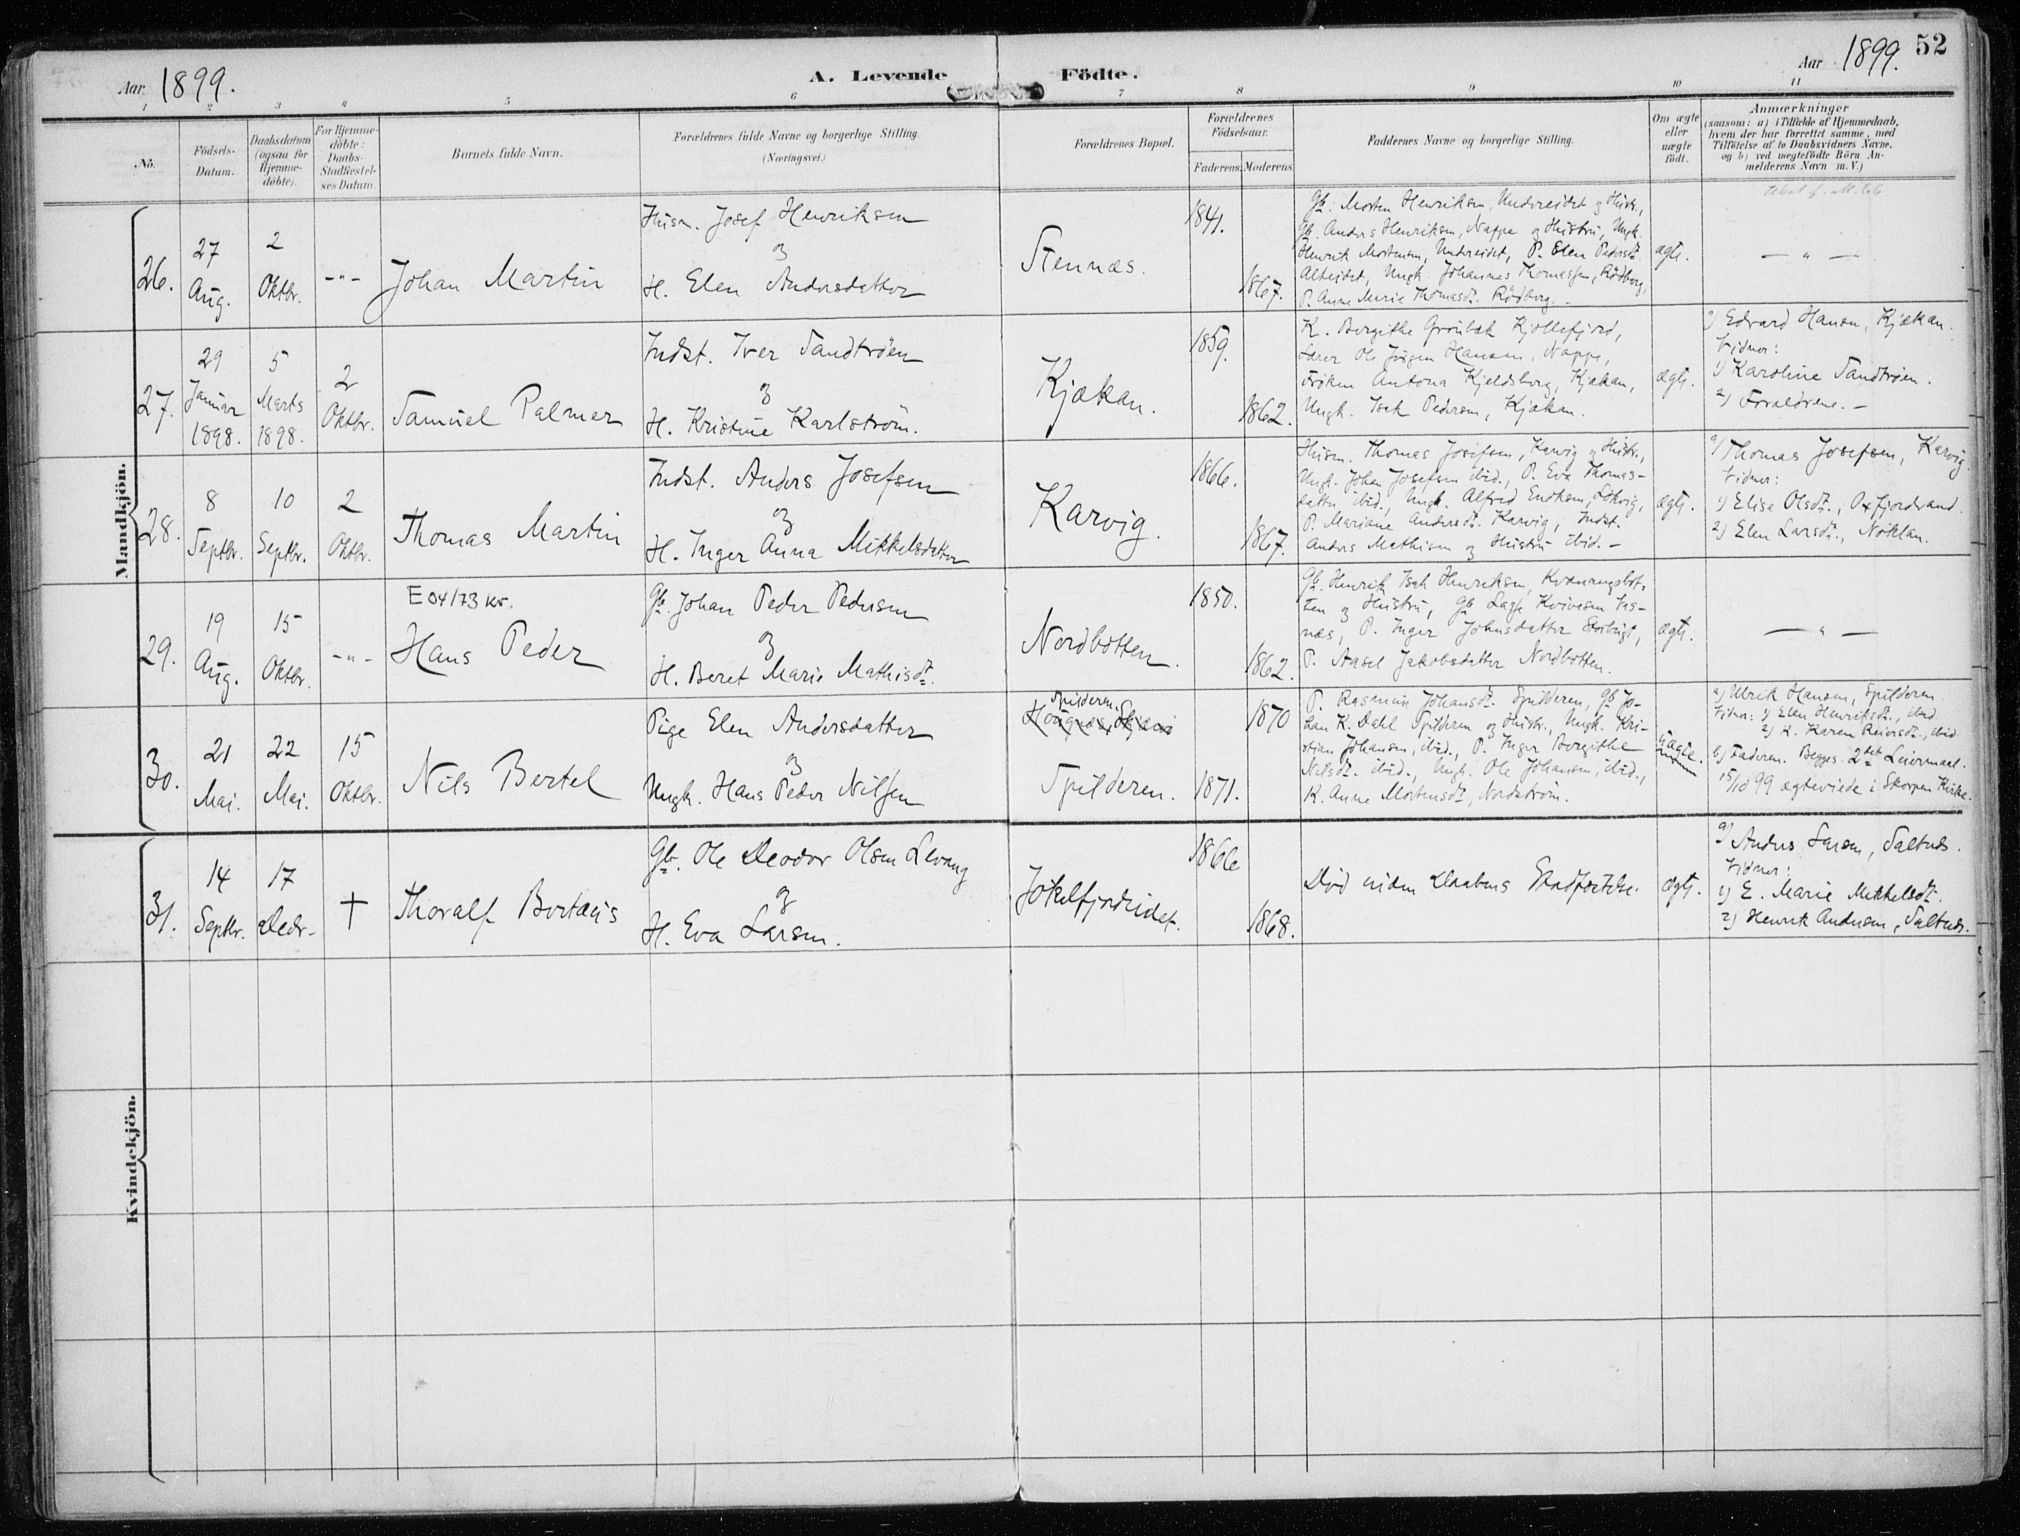 52
Aar 1899.
A. Levende Födte.
Aar 1899.
1 2 3 4 5 6 7 8 9 10 11
No.
Födsels-
Datum.
Daabsdatum
(ogsaa for
Hjemme-
döbte).
For Hjemme-
döbte:
Daabs-
Stadfæstel-
ses Datum.
Barnets fulde Navn.
Forældrenes fulde Navne og borgerlige Stilling.
(Næringsvei.)
Forældrenes Bopæl.
Forældrenes
Födselsaar.
Faderens. Moderens.
Faddernes Navne og borgerlige Stilling.
Om ægte
eller
uægte
födt.
Anmærkninger
(saasom: a) i Tilfælde af Hjemmedaab,
hvem der har forrettet samme, med
Tilföielse af to Daabsvidners Navne,
og b) ved uægtefödte Börn An-
melderens Navn m. V.)
Mandkjön.
26.
27
Aug.
2
Oktbr.
-"-
Johan Martin
Husm. Josef Henriksen
&
H. Elen Andersdatter
Stennæs.
1841.
1867.
Gb. Morten Henriksen, Undereidet og Hustr.,
Gb. Anders Henriksen, Nappe og Hustru, Ungk.
Henrik Mortensen, Undereidet, P. Elen Pedersdt.
Alteidet, Ungk. Johannes Thomassen, Rödberg,
P. Anne Marie Thomasdt. Rödberg.
ægte.
— " —
27.
29
Januar
1898.
5
Marts
1898.
2
Oktbr.
Samuel Palmer
Indst. Iver Sandtrøen
&
H. Kristine Karlström.
Kjækan.
1859.
1862.
K. Bergithe Grönbæk Kjöllefjord,
Lærer Ole Jörgen Hansen, Nappe,
Fröken Antona Kjeldsberg, Kjækan,
Ungk. Isak Pedersen, Kjækan.
ægte.
a) Edvard Hansen, Kjækan.
Vidner:
1) Karoline Sandtrøen.
2) Forældrene. -
28.
8
Septbr.
10
Septbr.
2
Oktbr.
Thomas Martin
Indst. Anders Josefsen
&
H. Inger Anna Mikkelsdatter
Karvig.
1866.
1867.
Husm. Thomas Josefsen, Karvig og Hustr.,
Ungk. Johan Josefsen ibid., P. Eva Thomas-
datter ibid., Ungk. Alfred
P. Mariane Andersdt. Karvig, Indst.
Anders Mathisen og Hustru ibid. -
ægte.
a) Thomas Josefsen, Karvig.
Vidner:
1) Elise Olsdt., Oxfjordvand.
2) Elen Larsdt., Nöklan.
29.
19
Aug.
15
Oktbr.
-"-
E 04/73 kr.
Hans Peder
Gb. Johan Peder Pedersen
&
H. Beret Marie Mathisdt.
Nordbotten.
1850.
1862.
Gb. Henrik Isak Henriksen, Kvænangsbot-
ten og Hustru, Gb.
næs, P. Inger Johnsdatter
P. Aasel Jakobsdatter Nordbotten.
ægte.
— " —
30.
21
Mai.
22
Mai.
15
Oktbr.
Nils Bertel
Pige Elen Andersdatter
&
Ungk. Hans Peder Nilsen
Spilderen.
Spilderen.
1870
1871.
P. Rasmine Johansdt. Spilderen, Gb. Jo-
han K. Dahl Spilderen og Hustr., Ungk. Kri-
stian Johansen, ibid., P. Inger Bergithe
Nilsdt. ibid., Ungk. Ole Johansen, ibid.,
K. Anne Mortensdt., Nordström.
uægte.
a) Ulrik Hansen, Spilderen.
Vidner: 1) Elen Henriksdt., ibid.
2) K. Karen Reiersdt., ibid.
b) Faderen. Begges 2det Leiermaal.
15/10 99 ægteviede i Skorpen Kirke.
Kvindekjön.
31.
14
Septbr.
17
Decbr.
†
Thoralf
Gb. Ole Deodor Olsen Levang
&
H. Eva Larsen.
Jökelfjordeidet.
1866
1868.
Död uden Daabens Stadfæstelse.
ægte.
a) Anders Larsen, Saltnes.
Vidner:
1) E. Marie Mikkelsdt.
2) Henrik Andersen, Saltnes.